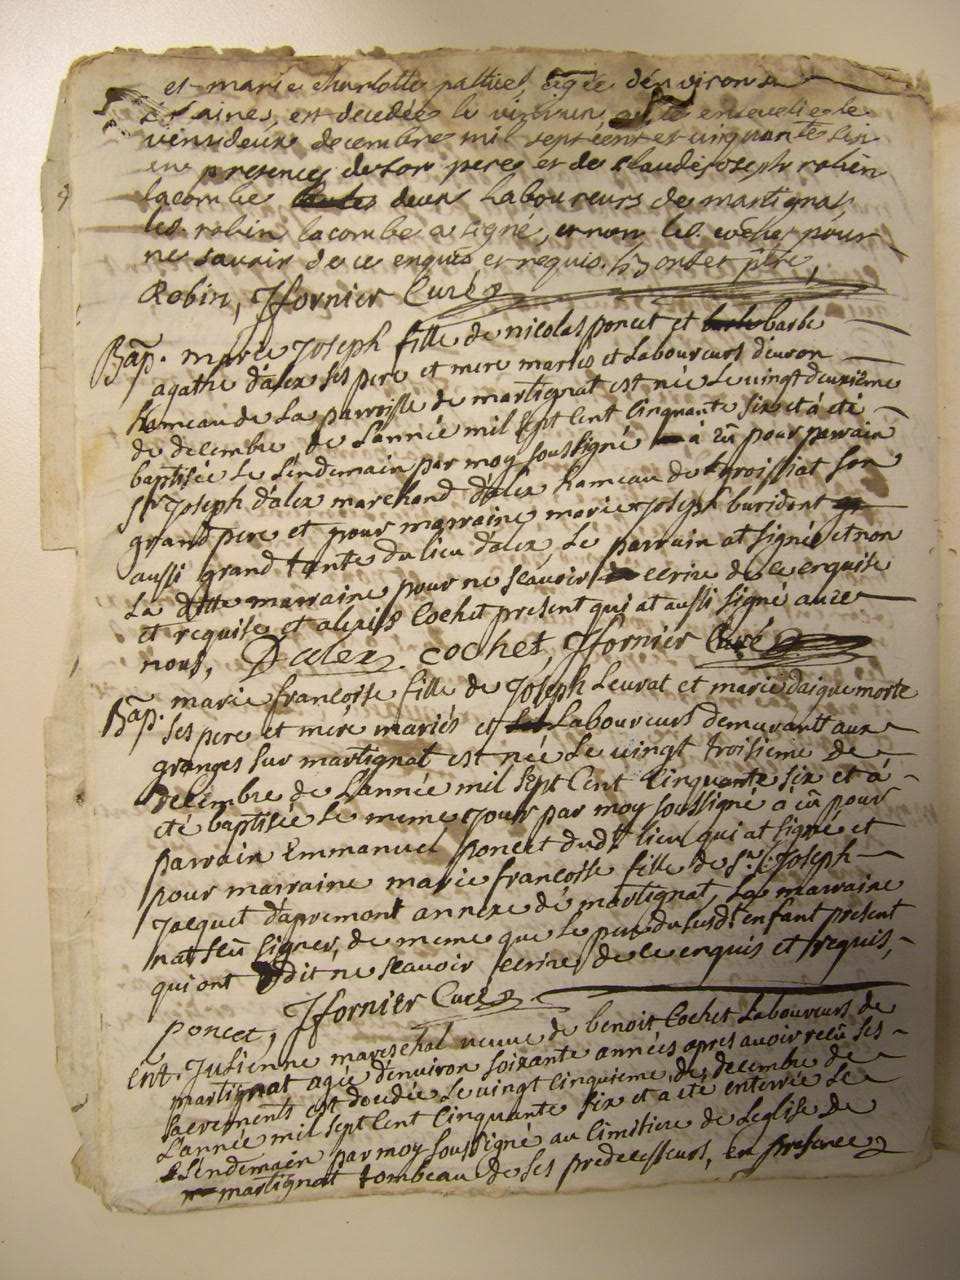 et marie charlotte pattiel, agée d'environ
ans, est decedée le vint un, et été ensevelie le
vint deux decembre mil sept cent cinquante six
en presence de son pere et de claude joseph robin
lacombe deux laboureurs de martignat,
led. robin lacombe a signé, et non led. cochet pour
ne savoir de ce enquis et requis.
Robin, Jfornier Curé
Bap. marie Joseph fille de nicolas poncet et barbe
agathe d'alex ses pere et mere mariés et Laboureurs d'evron
hameau de La parroisse de martignat est née Le vingt deuxième
de decembre de L'année mil sept Cent Cinquante six et à eté
baptisée Le Lendemain par moy soussigné à eü pour parrain
Sr. Joseph d'alex marchand d'alex hameau de son
grand pere et pour marraine marie Joseph burident
aussi grand tante du lieu d'alex, Le parrain at signé et non
La ditte marraine pour ne scavoir ecrire de ce enquise
et requise et alexis Cochet present qui at aussi signé avec
nous, Dalex. cochet, Jfornier Curé
Bap. marie francoise fille de Joseph Leurat et marie daiguemorte
ses pere et mere mariés et Laboureurs demeurant aux
granges sur martignat est née Le vingt troisieme de
decembre de L'année mil sept Cent Cinquante six et à
eté baptisée Le meme Jour par moy soussigné à eü pour
parrain Emmanuel poncet dudt. lieu qui at signé et
pour marraine marie francoise fille de Sr. Joseph
Jacquet d'apremont annexe de martignat, La marraine
nat sçü signer, de meme que Le pere du susdt. enfant present
qui ont dit ne scavoir ecrire de ce enquis et requis,
poncet, Jfornier Curé
Ent. Julienne mareschal veuve de benoit Cochet Laboureurs de
martignat agée d'environ soixante années apres avoir reçü ses
sacrements est decedée Le vingt Cinquieme de decembre de
L'année mil sept Cent Cinquante six et a eté enterrée Le
Lendemain par moy soussigné au Cimitiere de Leglise de
martignat tombeau de ses predecesseurs, en presence